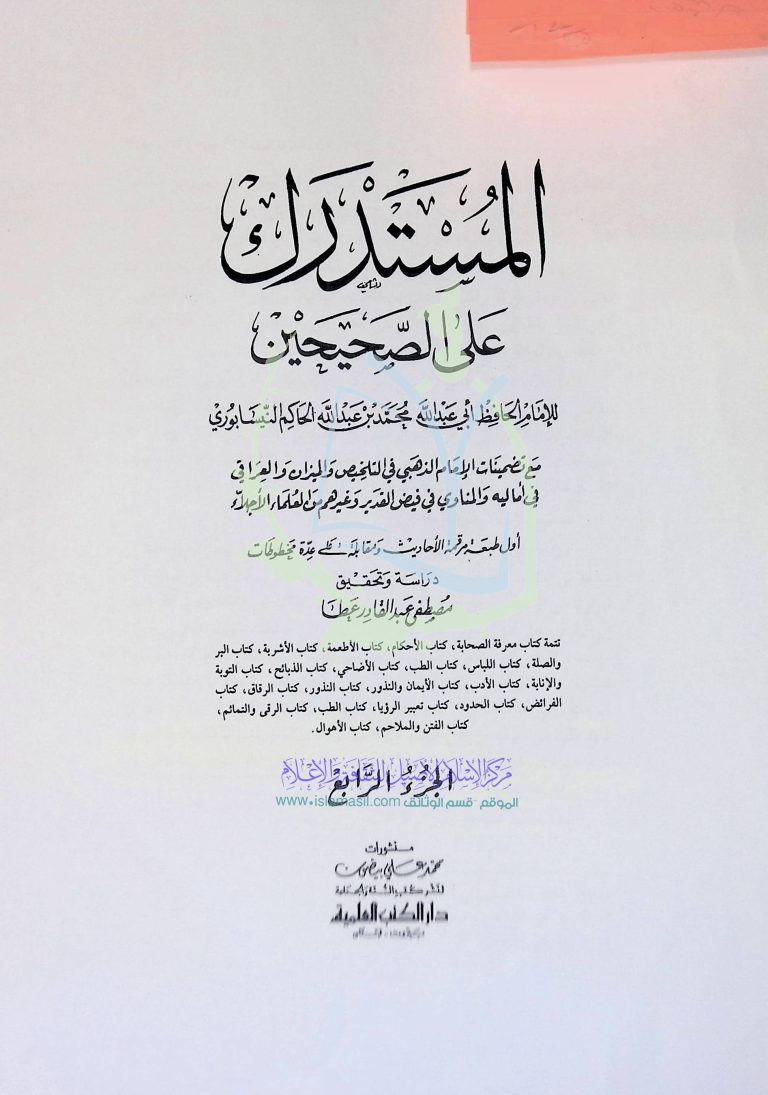 المُسْتَدْرَك
عَلَى الصَّحِيحَيْن
للإمَام الحَافِظ أبي عَبْدالله مُحَمَّد بْن عَبْدالله الحَاكِم النَّيسَابُوري
مَع تضمينَات الإمَام الذهَبي في التلخيص وَالميزان وَالعِرَاقي
في أماليه وَالمنَاوي في فيض القدير وَغيرهم مَن العُلمَاء الأجلاّء
أول طبعَة مرقمة الأحاديث وَمقَابلة عَلى عِدّة مخطوطات
دراسة وَتحقيق
مُصطفى عَبد القَادر عَطَا
تتمة كتاب معرفة الصحابة، كتاب الأحكام، كتاب الأطعمة، كتاب الأشربة، كتاب البر
والصلة، كتاب اللباس، كتاب الطب، كتاب الأضاحي، كتاب الذبائح، كتاب التوبة
والإنابة، كتاب الأدب، كتاب الأيمان والنذور، كتاب النذور، كتاب الرقاق، كتاب
الفرائض، كتاب الحدود، كتاب تعبير الرؤيا، كتاب الطب، كتاب الرقى والتمائم،
كتاب الفتن والملاحم، كتاب الأهوال.
مركز الإسلام الأصيل للثقافة والإعلام
الجُزءُ الرَّابِع
الموقع - قسم الوثائق www.islamasil.com
منشورات
محمد علي بيضون
لنشر كتب السنة والجماعة
دار الكتب العلمية
بيروت - لبنان